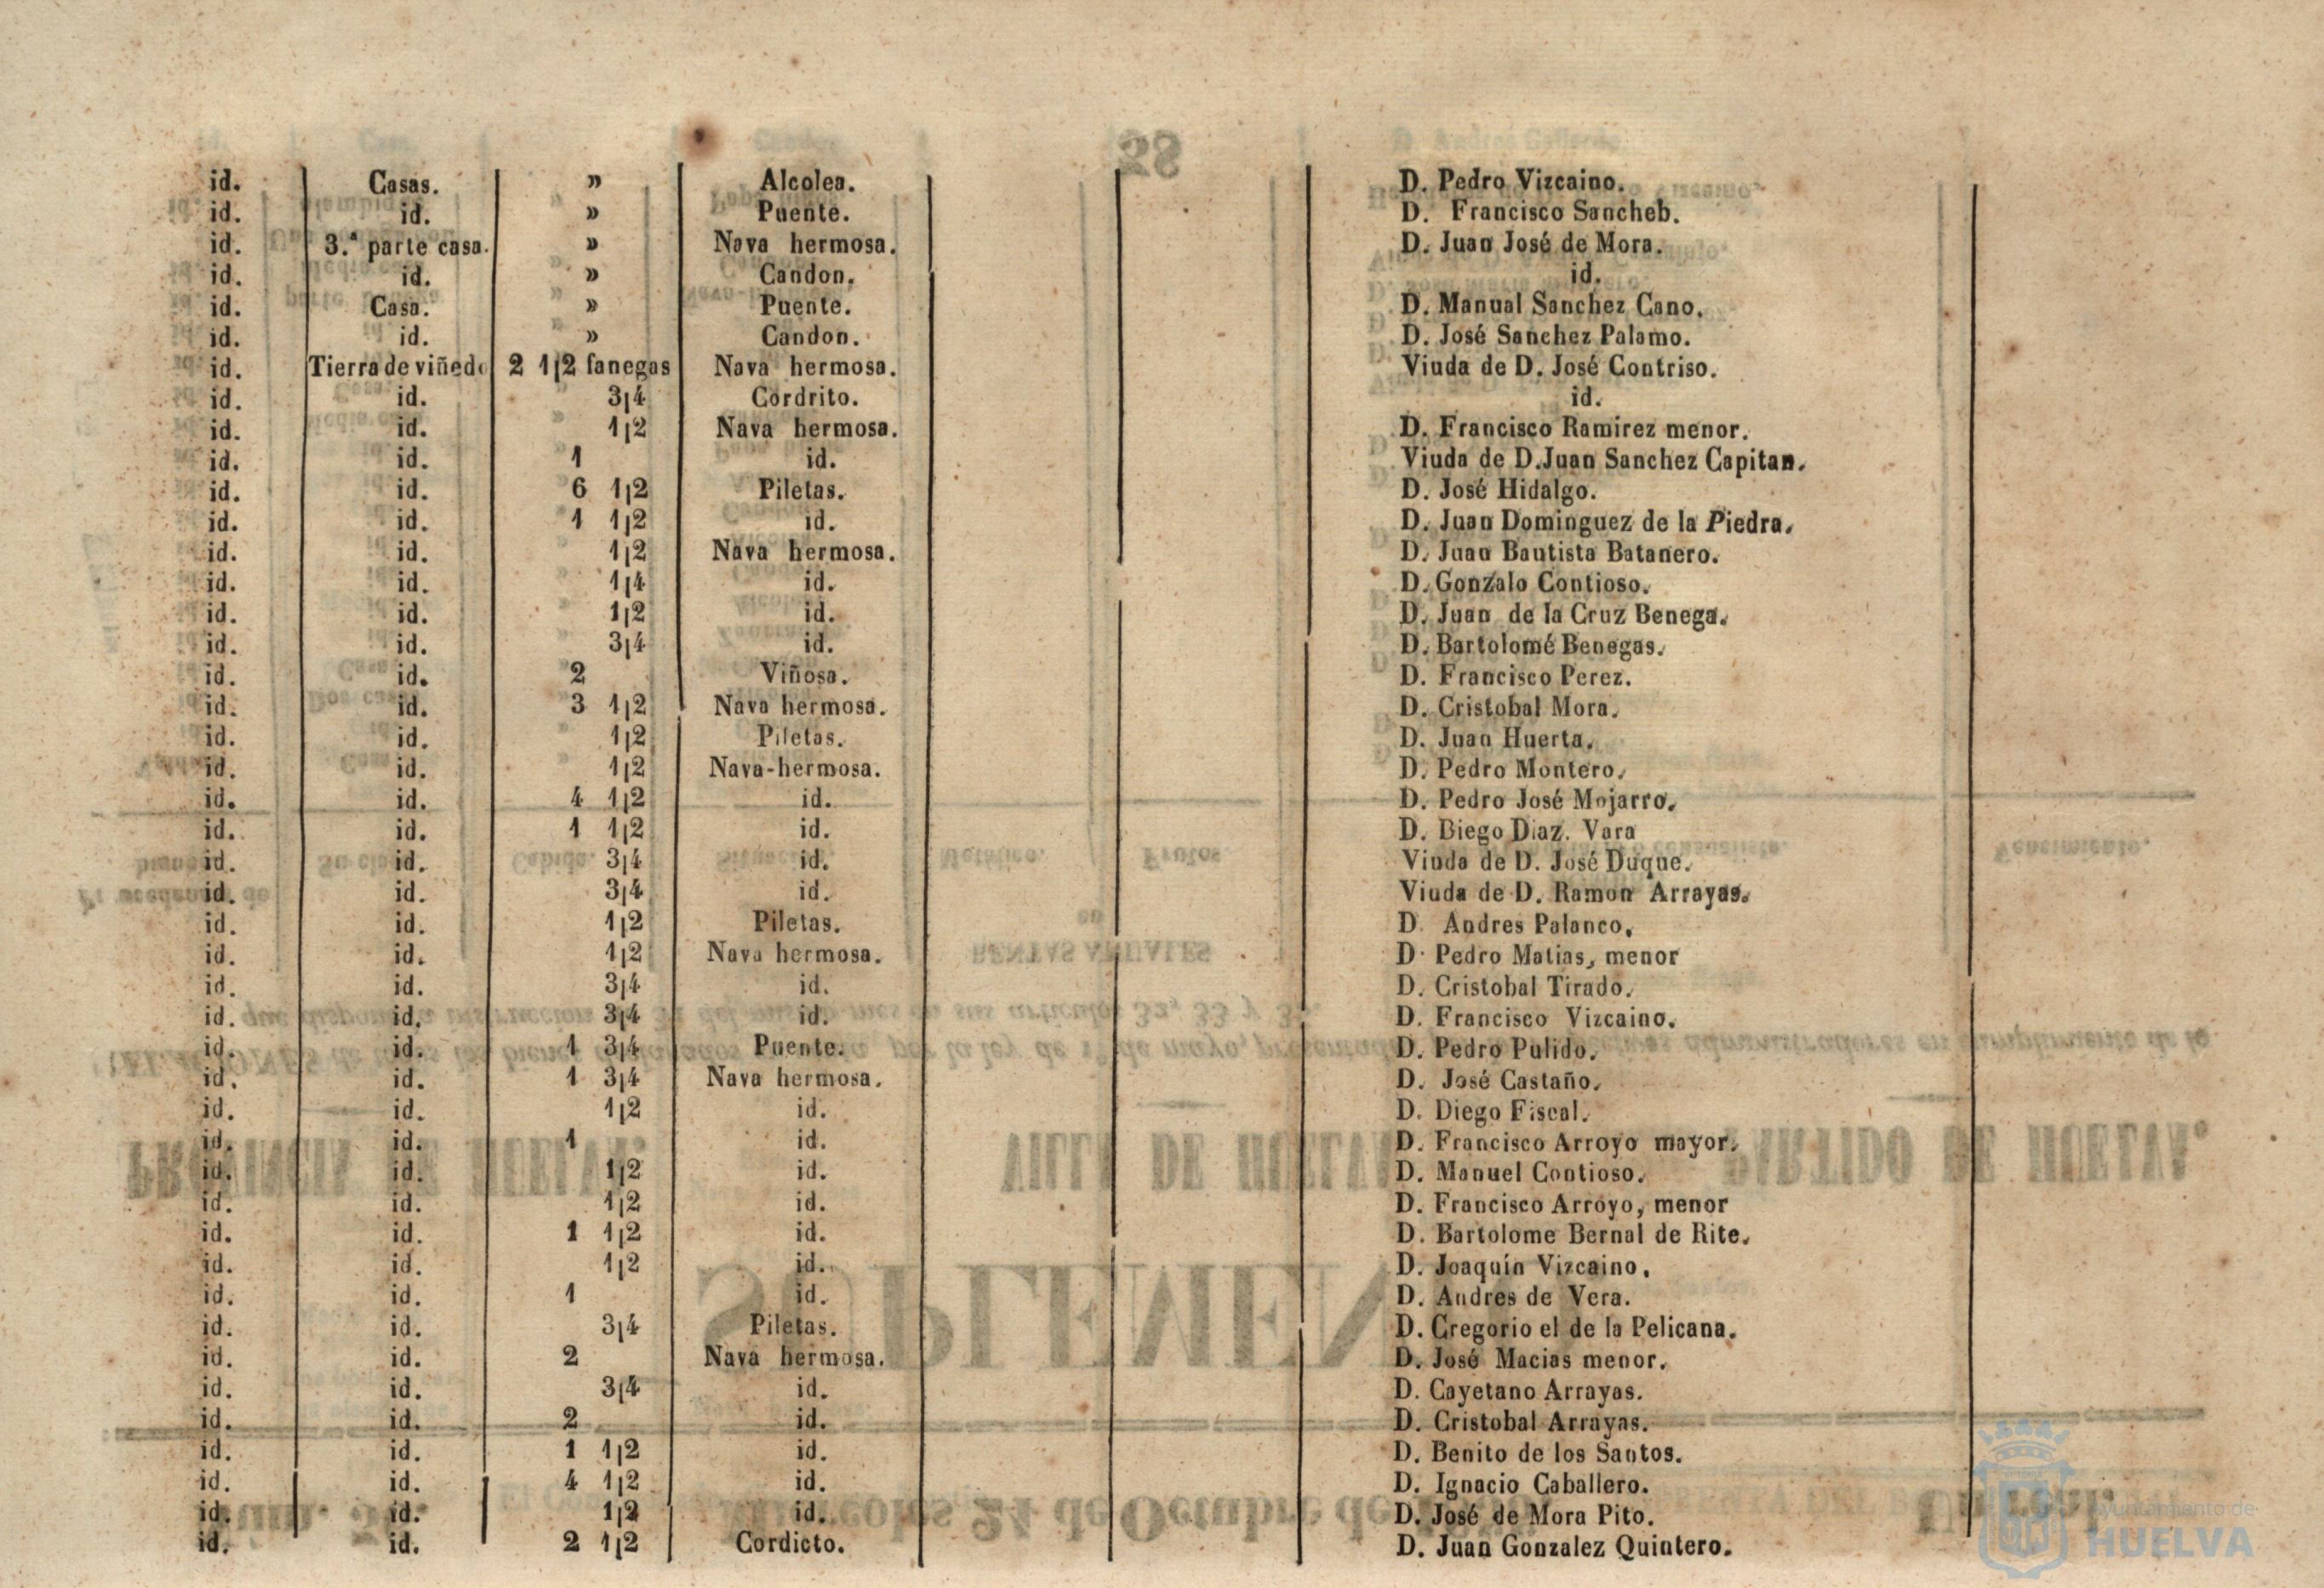 id. Casas. » Alcolea. D. Pedro Vizcaino.
id. id. » Puente. D. Francisco Sancheb.
id. 3.ª parte casa. » Nava hermosa. D. Juan José de Mora.
id. id. » Candon. id.
id. Casa. » Puente. D. Manual Sanchez Cano.
id. id. » Candon. D. José Sanchez Palamo.
id. Tierra de viñedo 2 1|2 fanegas Nava hermosa. Viuda de D. José Contriso.
id. id. 3|4 Cordrito. id.
id. id. 1|2 Nava hermosa. D. Francisco Ramirez menor.
id. id. 1 id. Viuda de D. Juan Sanchez Capitan.
id. id. 6 1|2 Piletas. D. José Hidalgo.
id. id. 1 1|2 id. D. Juan Dominguez de la Piedra.
id. id. 1|2 Nava hermosa. D. Juan Bautista Batanero.
id. id. 1|4 id. D. Gonzalo Contioso.
id. id. 1|2 id. D. Juan de la Cruz Benega.
id. id. 3|4 id. D. Bartolomé Benegas.
id. id. 2 Viñosa. D. Francisco Perez.
id. id. 3 1|2 Nava hermosa. D. Cristobal Mora.
id. id. 1|2 Piletas. D. Juan Huerta.
id. id. 1|2 Nava-hermosa. D. Pedro Montero.
id. id. 4 1|2 id. D. Pedro José Mojarro.
id. id. 1 1|2 id. D. Diego Diaz. Vara
id. id. 3|4 id. Viuda de D. José Duque.
id. id. 3|4 id. Viuda de D. Ramon Arrayas.
id. id. 1|2 Piletas. D. Andres Palanco.
id. id. 1|2 Nava hermosa. D. Pedro Matias, menor
id. id. 3|4 id. D. Cristobal Tirado.
id. id. 3|4 id. D. Francisco Vizcaino.
id. id. 1 3|4 Puente. D. Pedro Pulido.
id. id. 1 3|4 Nava hermosa. D. José Castaño.
id. id. 1|2 id. D. Diego Fiscal.
id. id. 1 id. D. Francisco Arroyo mayor.
id. id. 1|2 id. D. Manuel Contioso.
id. id. 1|2 id. D. Francisco Arroyo, menor
id. id. 1 1|2 id. D. Bartolome Bernal de Rite.
id. id. 1|2 id. D. Joaquín Vizcaino.
id. id. 1 id. D. Andres de Vera.
id. id. 3|4 Piletas. D. Gregorio el de la Pelicana.
id. id. 2 Nava hermosa. D. José Macias menor.
id. id. 3|4 id. D. Cayetano Arrayas.
id. id. 2 id. D. Cristobal Arrayas.
id. id. 1 1|2 id. D. Benito de los Santos.
id. id. 4 1|2 id. D. Ignacio Caballero.
id. id. 1|2 id. D. José de Mora Pito.
id. id. 2 1|2 Cordicto. D. Juan Gonzalez Quintero.
Ayuntamiento de
HUELVA